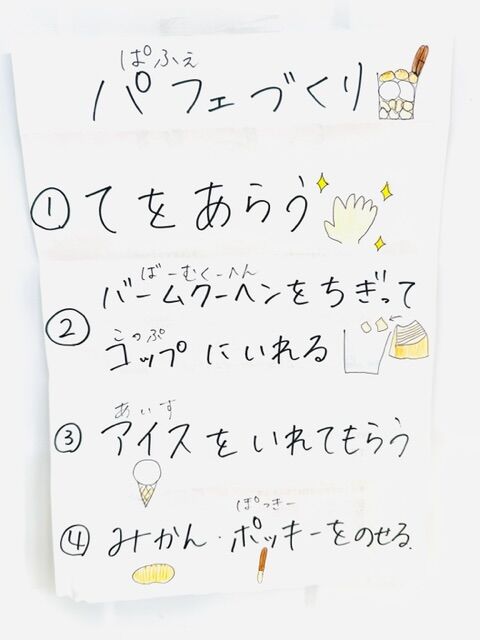 ぱふぇ
パフェづくり
①てをあらう
ばーむくーへん
②バームクーヘンをちぎって
こっぷ
コップにいれる
あいす
③アイスをいれてもらう
ぽっきー
④みかん・ポッキーをのせる.